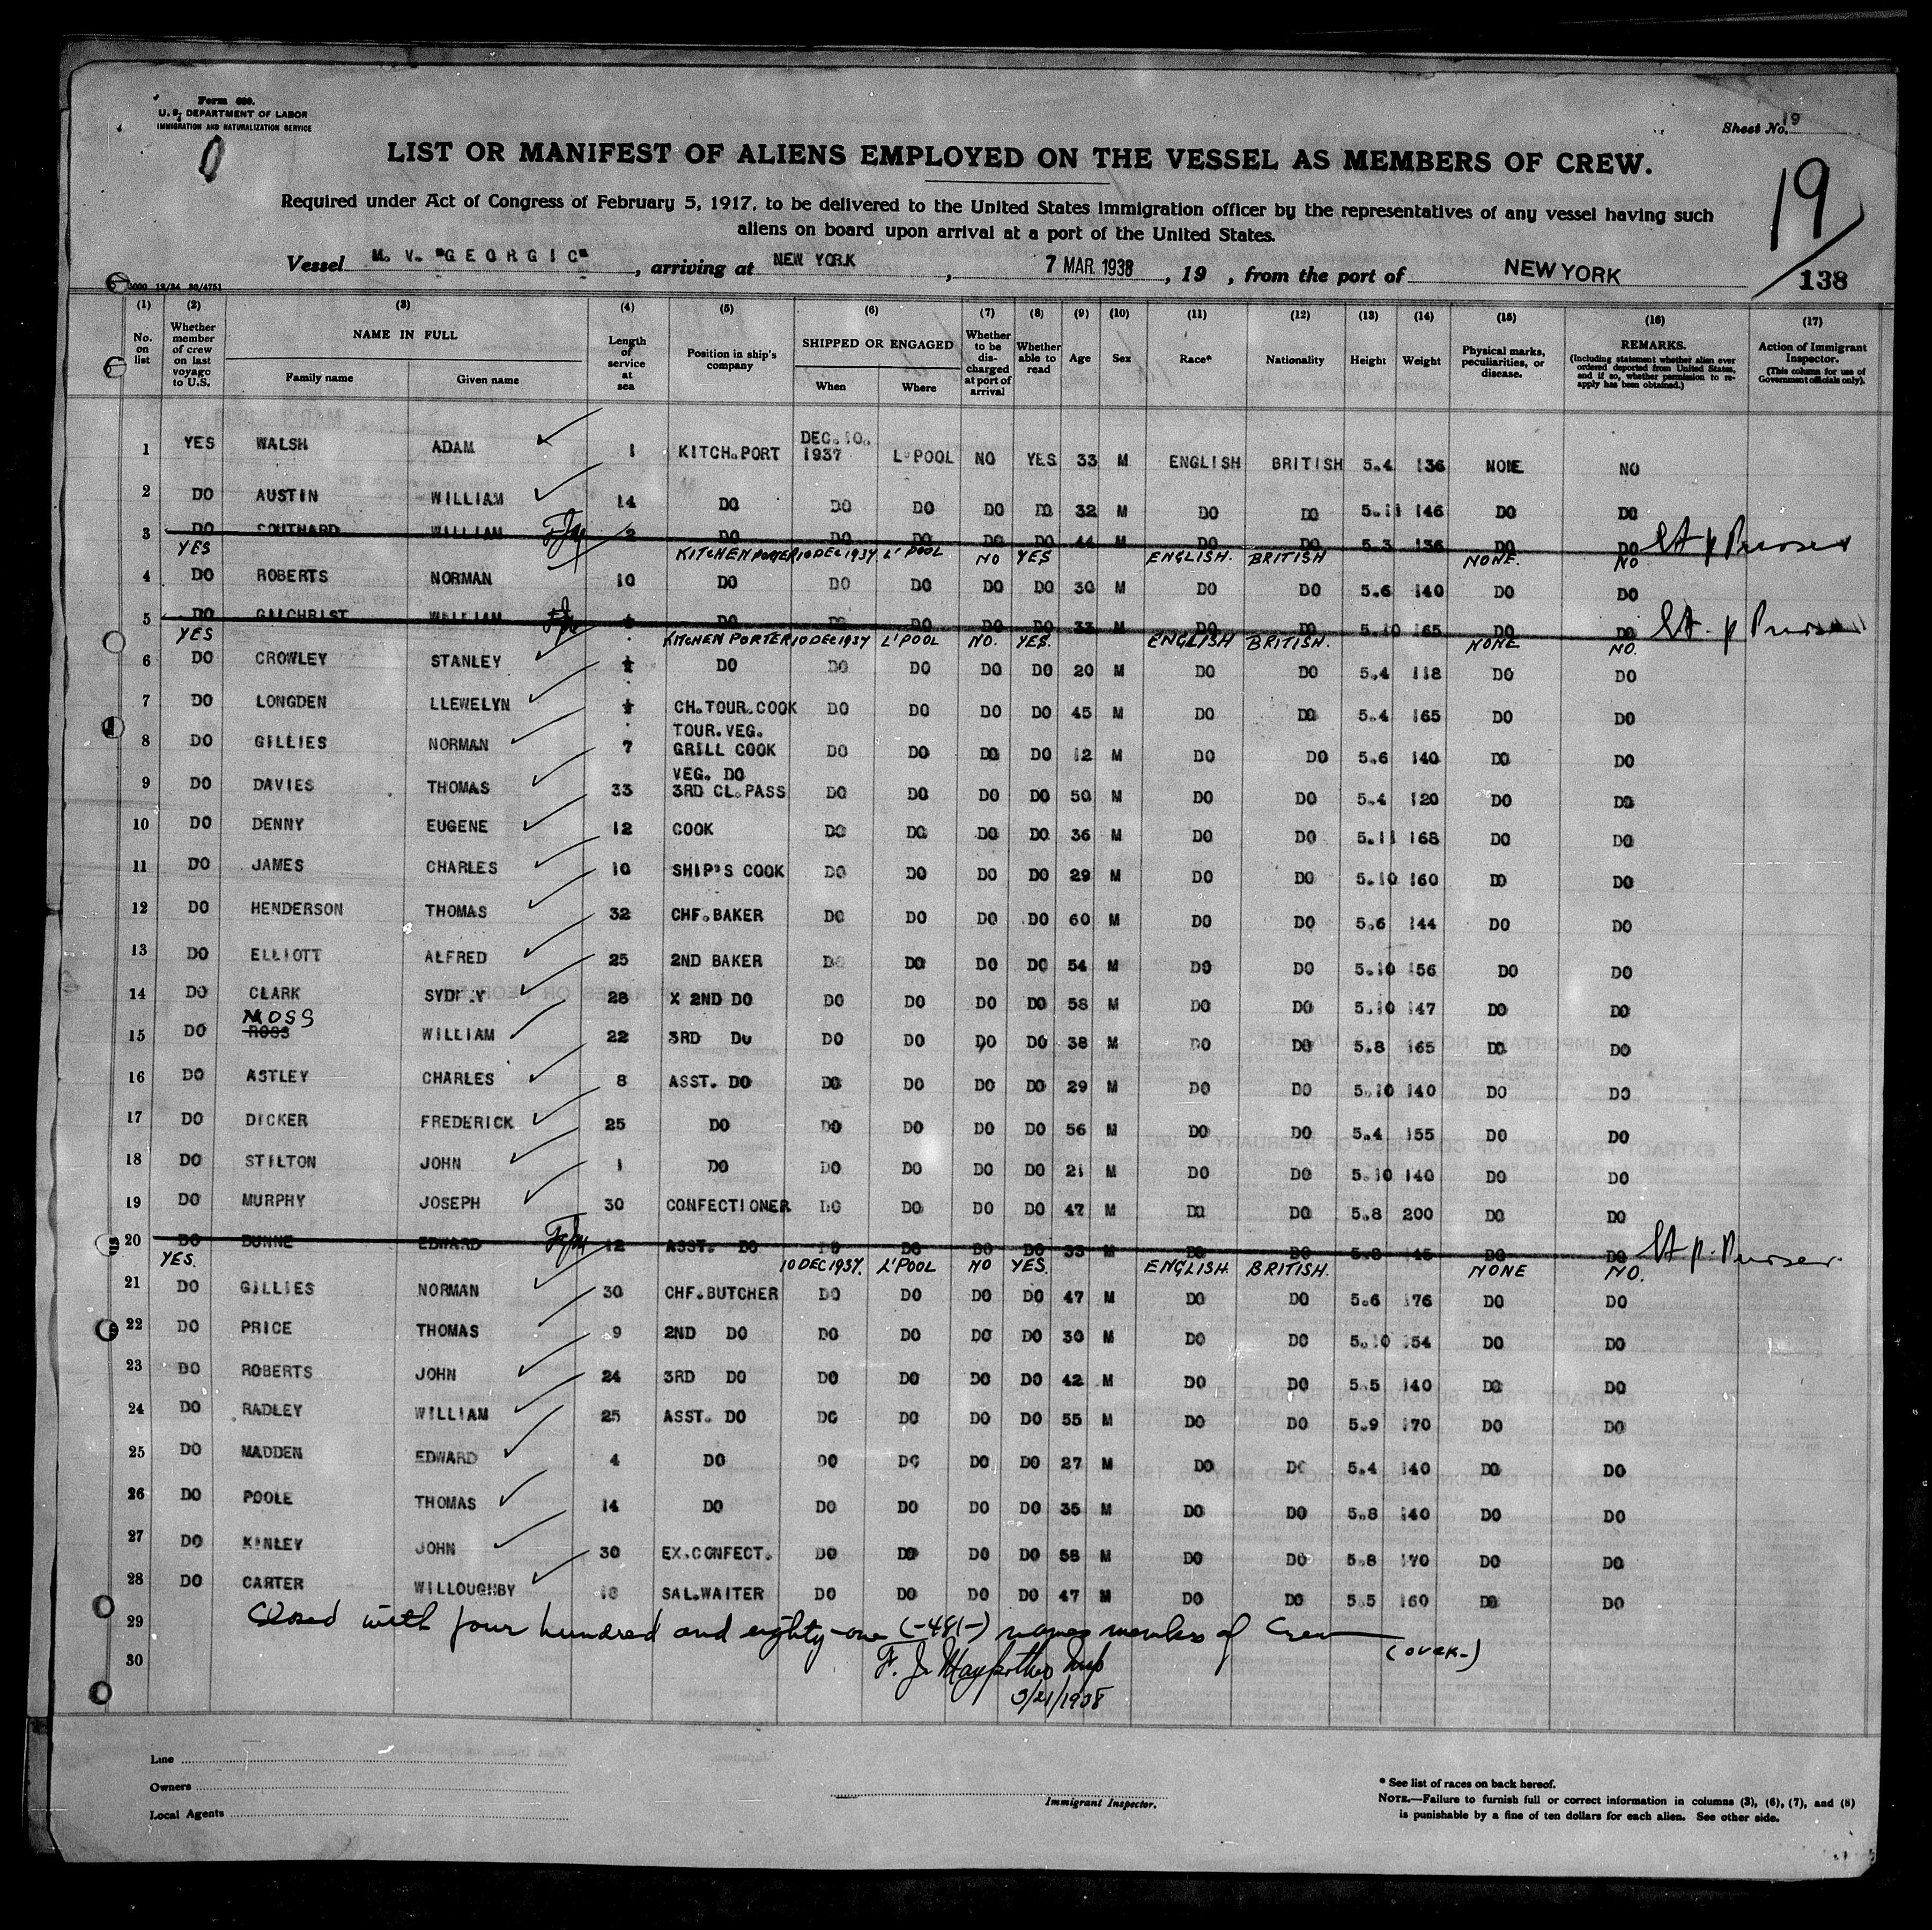 Form 680.
U. S. DEPARTMENT OF LABOR
IMMIGRATION AND NATURALIZATION SERVICE
Sheet No. 19
LIST OR MANIFEST OF ALIENS EMPLOYED ON THE VESSEL AS MEMBERS OF CREW.
19
Required under Act of Congress of February 5, 1917, to be delivered to the United States immigration officer by the representatives of any vessel having such
aliens on board upon arrival at a port of the United States.
Vessel M. V. "GEORGIC", arriving at NEW YORK, 7 MAR 1938, 19 , from the port of NEW YORK
138
(1) (2) (3) (4) (5) (6) (7) (8) (9) (10) (11) (12) (13) (14) (15) (16) (17)
No. on list
Whether member of crew on last voyage to U.S.
NAME IN FULL
Family name
Given name
Length of service at sea
Position in ship's company
SHIPPED OR ENGAGED
When
Where
Whether to be discharged at port of arrival
Whether able to read
Age
Sex
Race*
Nationality
Height
Weight
Physical marks, peculiarities, or disease.
REMARKS.
(Including statement whether alien ever ordered deported from United States, and if so, whether permission to reapply has been obtained.)
Action of Immigrant Inspector.
(This column for use of Government officials only).
1 YES WALSH ADAM 1 KITCH.PORT DEC.10. 1937 L'POOL NO YES 33 M ENGLISH BRITISH 5.4 136 NONE NO
2 DO AUSTIN WILLIAM 14 DO DO DO DO DO 32 M DO DO 5.11 146 DO DO
3 DO SOUTHARD WILLIAM 2 DO DO DO DO DO 44 M DO DO 5.3 136 DO DO
YES KITCHEN PORTER 10 DEC 1937 L'POOL NO YES ENGLISH. BRITISH NONE. NO
4 DO ROBERTS NORMAN 10 DO DO DO DO DO 30 M DO DO 5.6 140 DO DO
5 DO GILCHRIST WILLIAM DO DO DO DO DO 33 M DO DO 5.10 165 DO DO
YES KITCHEN PORTER 10 DEC 1937 L'POOL NO. YES. ENGLISH BRITISH. NONE NO.
6 DO CROWLEY STANLEY DO DO DO DO DO 20 M DO DO 5.4 118 DO DO
7 DO LONGDEN LLEWELYN CH.TOUR.COOK DO DO DO DO 45 M DO DO 5.4 165 DO DO
8 DO GILLIES NORMAN 7 TOUR.VEG. GRILL COOK DO DO DO DO 12 M DO DO 5.6 140 DO DO
9 DO DAVIES THOMAS 33 VEG. DO 3RD CL.PASS DO DO DO DO 50 M DO DO 5.4 120 DO DO
10 DO DENNY EUGENE 12 COOK DO DO DO DO 36 M DO DO 5.11 168 DO DO
11 DO JAMES CHARLES 10 SHIP'S COOK DO DO DO DO 29 M DO DO 5.10 160 DO DO
12 DO HENDERSON THOMAS 32 CHF.BAKER DO DO DO DO 60 M DO DO 5.6 144 DO DO
13 DO ELLIOTT ALFRED 25 2ND BAKER DO DO DO DO 54 M DO DO 5.10 156 DO DO
14 DO CLARK SYDNEY 28 X 2ND DO DO DO DO DO 58 M DO DO 5.10 147 DO DO
MOSS
15 DO ROSS WILLIAM 22 3RD DO DO DO DO DO 38 M DO DO 5.8 165 DO DO
16 DO ASTLEY CHARLES 8 ASST. DO DO DO DO DO 29 M DO DO 5.10 140 DO DO
17 DO DICKER FREDERICK 25 DO DO DO DO DO 56 M DO DO 5.4 155 DO DO
18 DO STILTON JOHN 1 DO DO DO DO DO 21 M DO DO 5.10 140 DO DO
19 DO MURPHY JOSEPH 30 CONFECTIONER DO DO DO DO 47 M DO DO 5.8 200 DO DO
20 DO DUNNE EDWARD 12 ASST. DO DO DO DO DO 33 M DO DO 5.8 145 DO DO
YES. 10 DEC 1937. L'POOL NO YES. ENGLISH. BRITISH. NONE NO.
21 DO GILLIES NORMAN 30 CHF.BUTCHER DO DO DO DO 47 M DO DO 5.6 176 DO DO
22 DO PRICE THOMAS 9 2ND DO DO DO DO DO 30 M DO DO 5.10 154 DO DO
23 DO ROBERTS JOHN 24 3RD DO DO DO DO DO 42 M DO DO 5.5 140 DO DO
24 DO RADLEY WILLIAM 25 ASST. DO DO DO DO DO 55 M DO DO 5.9 170 DO DO
25 DO MADDEN EDWARD 4 DO DO DO DO DO 27 M DO DO 5.4 140 DO DO
26 DO POOLE THOMAS 14 DO DO DO DO DO 35 M DO DO 5.8 140 DO DO
27 DO KINLEY JOHN 30 EX.CONFECT. DO DO DO DO 58 M DO DO 5.8 170 DO DO
28 DO CARTER WILLOUGHBY SAL.WAITER DO DO DO DO 47 M DO DO 5.5 160 DO DO
29 Closed with four hundred and eighty-one (-481-) names members of Crew
(over-)
30
3/21/1938
Line
Owners
Local Agents
Immigrant Inspector.
* See list of races on back hereof.
NOTE.—Failure to furnish full or correct information in columns (3), (6), (7), and (8)
is punishable by a fine of ten dollars for each alien. See other side.